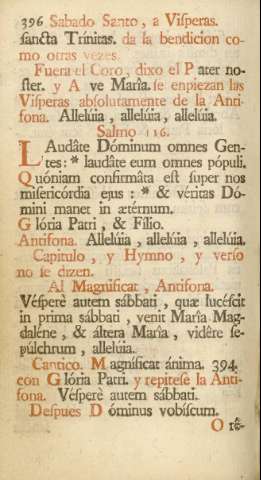 396 Sabado Santo, a Visperas.
sancta Trinitas. da la bendicion co-
mo otras vezes.
Fuera el Coro, dixo el Pater no-
ster. y Ave María. se enpiezan las
Visperas absolutamente de la Anti-
fona. Allelúia, allelúia, allelúia.
Salmo 116.
LAudáte Dóminum omnes Gen-
tes: * laudáte eum omnes pópuli.
Quóniam confirmáta est super nos
misericórdia ejus: * & véritas Dó-
mini manet in ætérnum.
Glória Patri, & Fílio.
Antifona. Allelúia, allelúia, allelúia.
Capitulo, y Hymno, y verso
no se dizen.
Al Magnificat, Antifona.
Véspere autem sábbati, quæ lucéscit
in prima sábbati, venit María Mag-
daléne, & áltera María, vidére se-
púlchrum, allelúia.
Cantico. Magníficat ánima. 394.
con Glória Patri. y repitese la Anti-
fona. Véspere autem sábbati.
Despues Dóminus vobíscum.